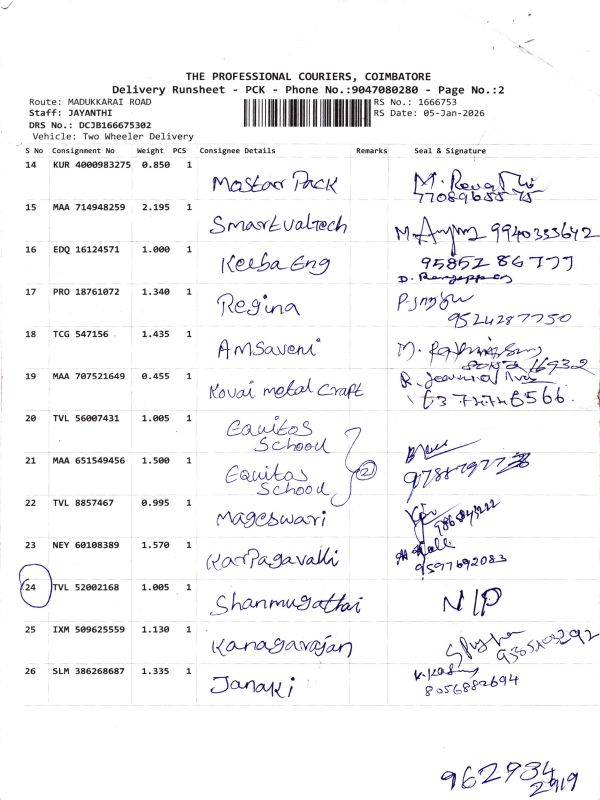 THE PROFESSIONAL COURIERS, COIMBATORE
Delivery Runsheet - PCK - Phone No.:9047080280 - Page No.:2
Route: MADUKKARAI ROAD RS No.: 1666753
Staff: JAYANTHI RS Date: 05-Jan-2026
DRS No.: DCJB166675302
Vehicle: Two Wheeler Delivery
S No Consignment No Weight PCS Consignee Details Remarks Seal & Signature
14 KUR 4000983275 0.850 1 Mostar Pack M.
15 MAA 714948259 2.195 1 Smartvaltech M. 9940333642
16 EDQ 16124571 1.000 1 Keeba Eng 95852 86777
D.
17 PRO 18761072 1.340 1 Regina
9524287750
18 TCG 547156 1.435 1 Amsaveni M.
19 MAA 707521649 0.455 1 Kovai metal Craft R.
20 TVL 56007431 1.005 1 Equitos School
21 MAA 651549456 1.500 1 Equitas School 2
22 TVL 8857467 0.995 1 Mageswari
23 NEY 60108389 1.570 1 Karpagavalli
9597692083
24 TVL 52002168 1.005 1 Shanmugathai N/P
25 IXM 509625559 1.130 1 Kanagarajan
26 SLM 386268687 1.335 1 Janaki K.
8056882694
962934
2919